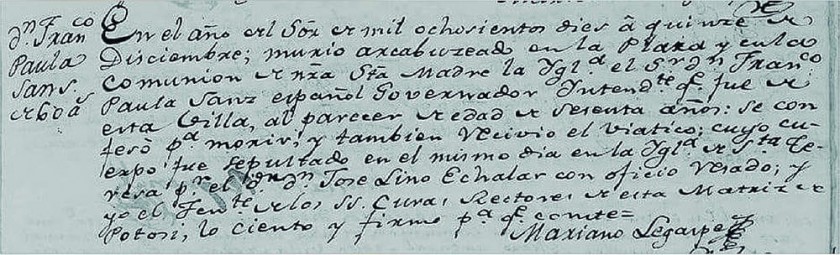 Dn Franco
Paula
Sans.
de 60 as
En el año del Sor de mil ochosientos dies á quinze de
Disciembre; murio arcabuzeado en la Plaza y en la
comunion de nra Sta Madre la Ygla el Sr dn Franco
Paula Sanz español Governador Intendte qe fue de
esta Villa, al parecer de edad de sesenta años: se con
fesó pa morir; y tambien recivio el viatico; cuyo cu-
erpo fue sepultado en el mismo dia en la Ygla de Sta Te-
resa pr el Dr dn Jose Lino Echalar con oficio resado; y
yo el Tente de los SS. Curas Rectores de esta Matriz de
Potosi, lo ciento y firmo pa qe conste=
Mariano Legarpe